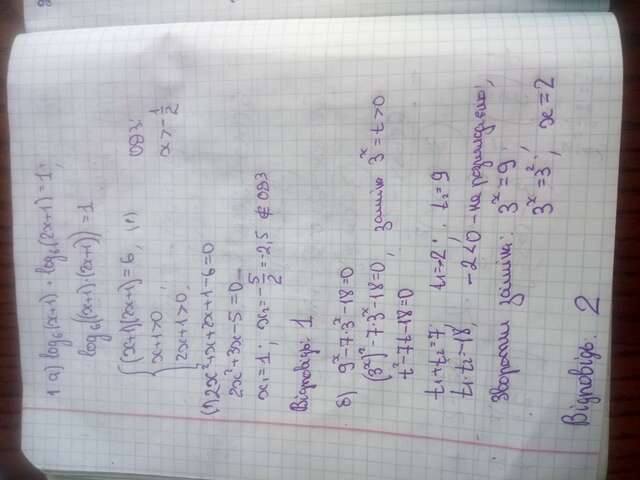 1. а) log₆(x+1) + log₆(2x+1) = 1;
log₆((x+1)·(2x+1)) = 1
{(x+1)(2x+1) = 6, (1) ОДЗ:
x+1>0, x > -1/2
2x+1>0,
(1) 2x²+x+2x+1-6=0
2x²+3x-5=0
x₁=1; x₂= -5/2 = -2,5 ∉ ОДЗ
Відповідь: 1
б) 9ˣ-7·3ˣ-18=0
(3ˣ)²-7·3ˣ-18=0, заміна 3ˣ=t>0
t²-7t-18=0
t₁+t₂=7, t₁=-2; t₂=9
t₁·t₂=-18, -2<0 - не розглядаємо;
Зворотня заміна: 3ˣ=9;
3ˣ=3²; x=2
Відповідь: 2